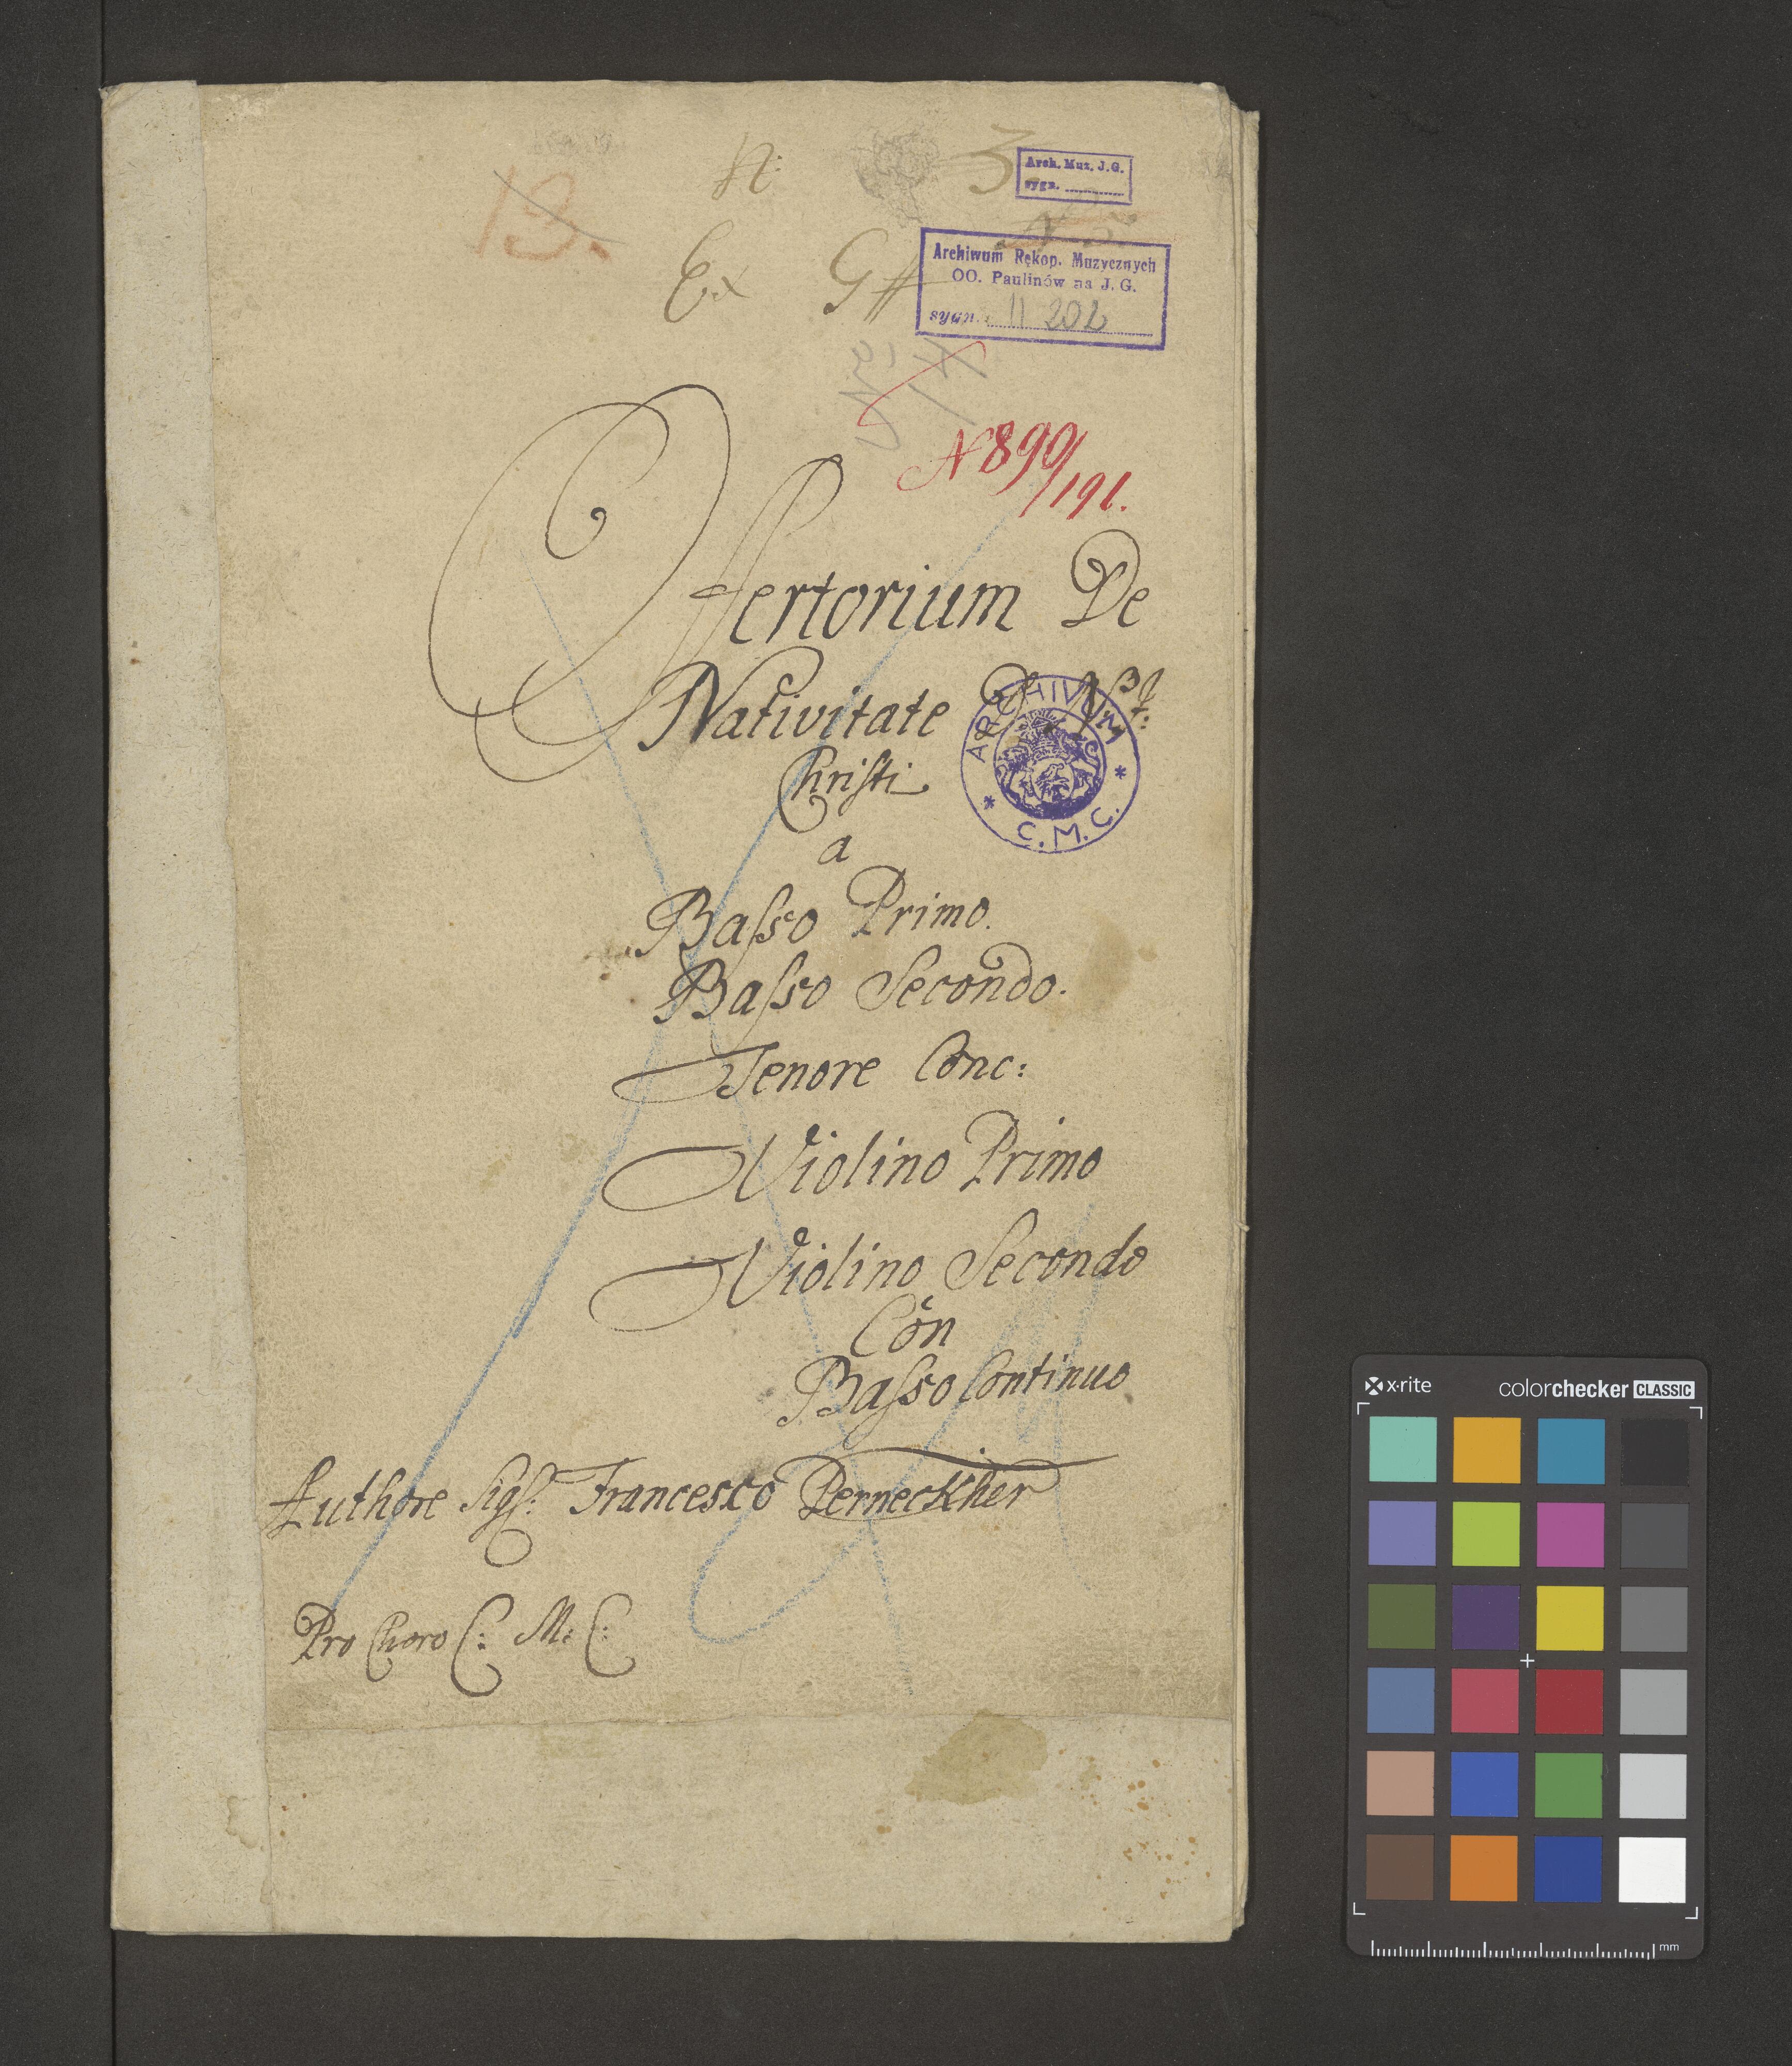 N: 3
Arch. Muz. J. G.
sygn.
13.
Ex G#
Archiwum Rękop. Muzycznych
OO. Paulinów na J. G.
sygn. II 202
N 890/191.
Offertorium De
Nativitate
Christi
ARCHIVUM
* C. M. C. *
a
Baſso Primo.
Baſso Secondo.
Tenore Conc:
Violino Primo
Violino Secondo
Con
Baſso Continuo
Authore Sigſ: Francesco Perneckher
Pro Choro C: M: C:
x·rite colorchecker CLASSIC
mm